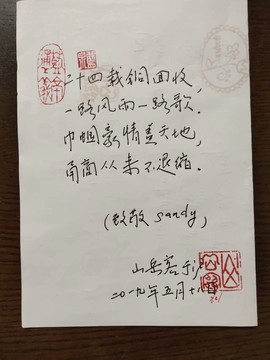 二十四载铜回收,
一路风雨一路歌.
巾帼豪情盖天地,
甬商从来不退缩.
(致敬 sandy)
山岳客于
二〇一九年五月十八